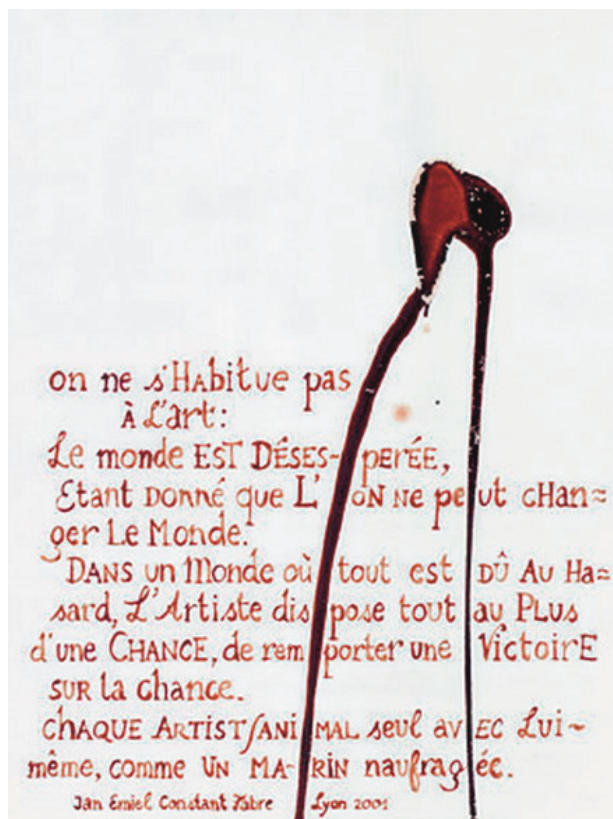 on ne s'HAbitue pas
À L'art:
Le monde EST DÉSES-PERÉE,
Etant DONNÉ que L'ON NE peut cHAn=
ger Le Monde.
DANS un Monde où tout est DÛ Au Ha=
sard, L'Artiste dispose tout au PLus
d'une CHANCE, de remporter une VictoirE
SUR la chance.
CHAQUE ARTIST/ANIMAL seul avEC Lui~
même, comme UN MA-RIN naufragéc.
Jan Emiel Constant Fabre Lyon 2001